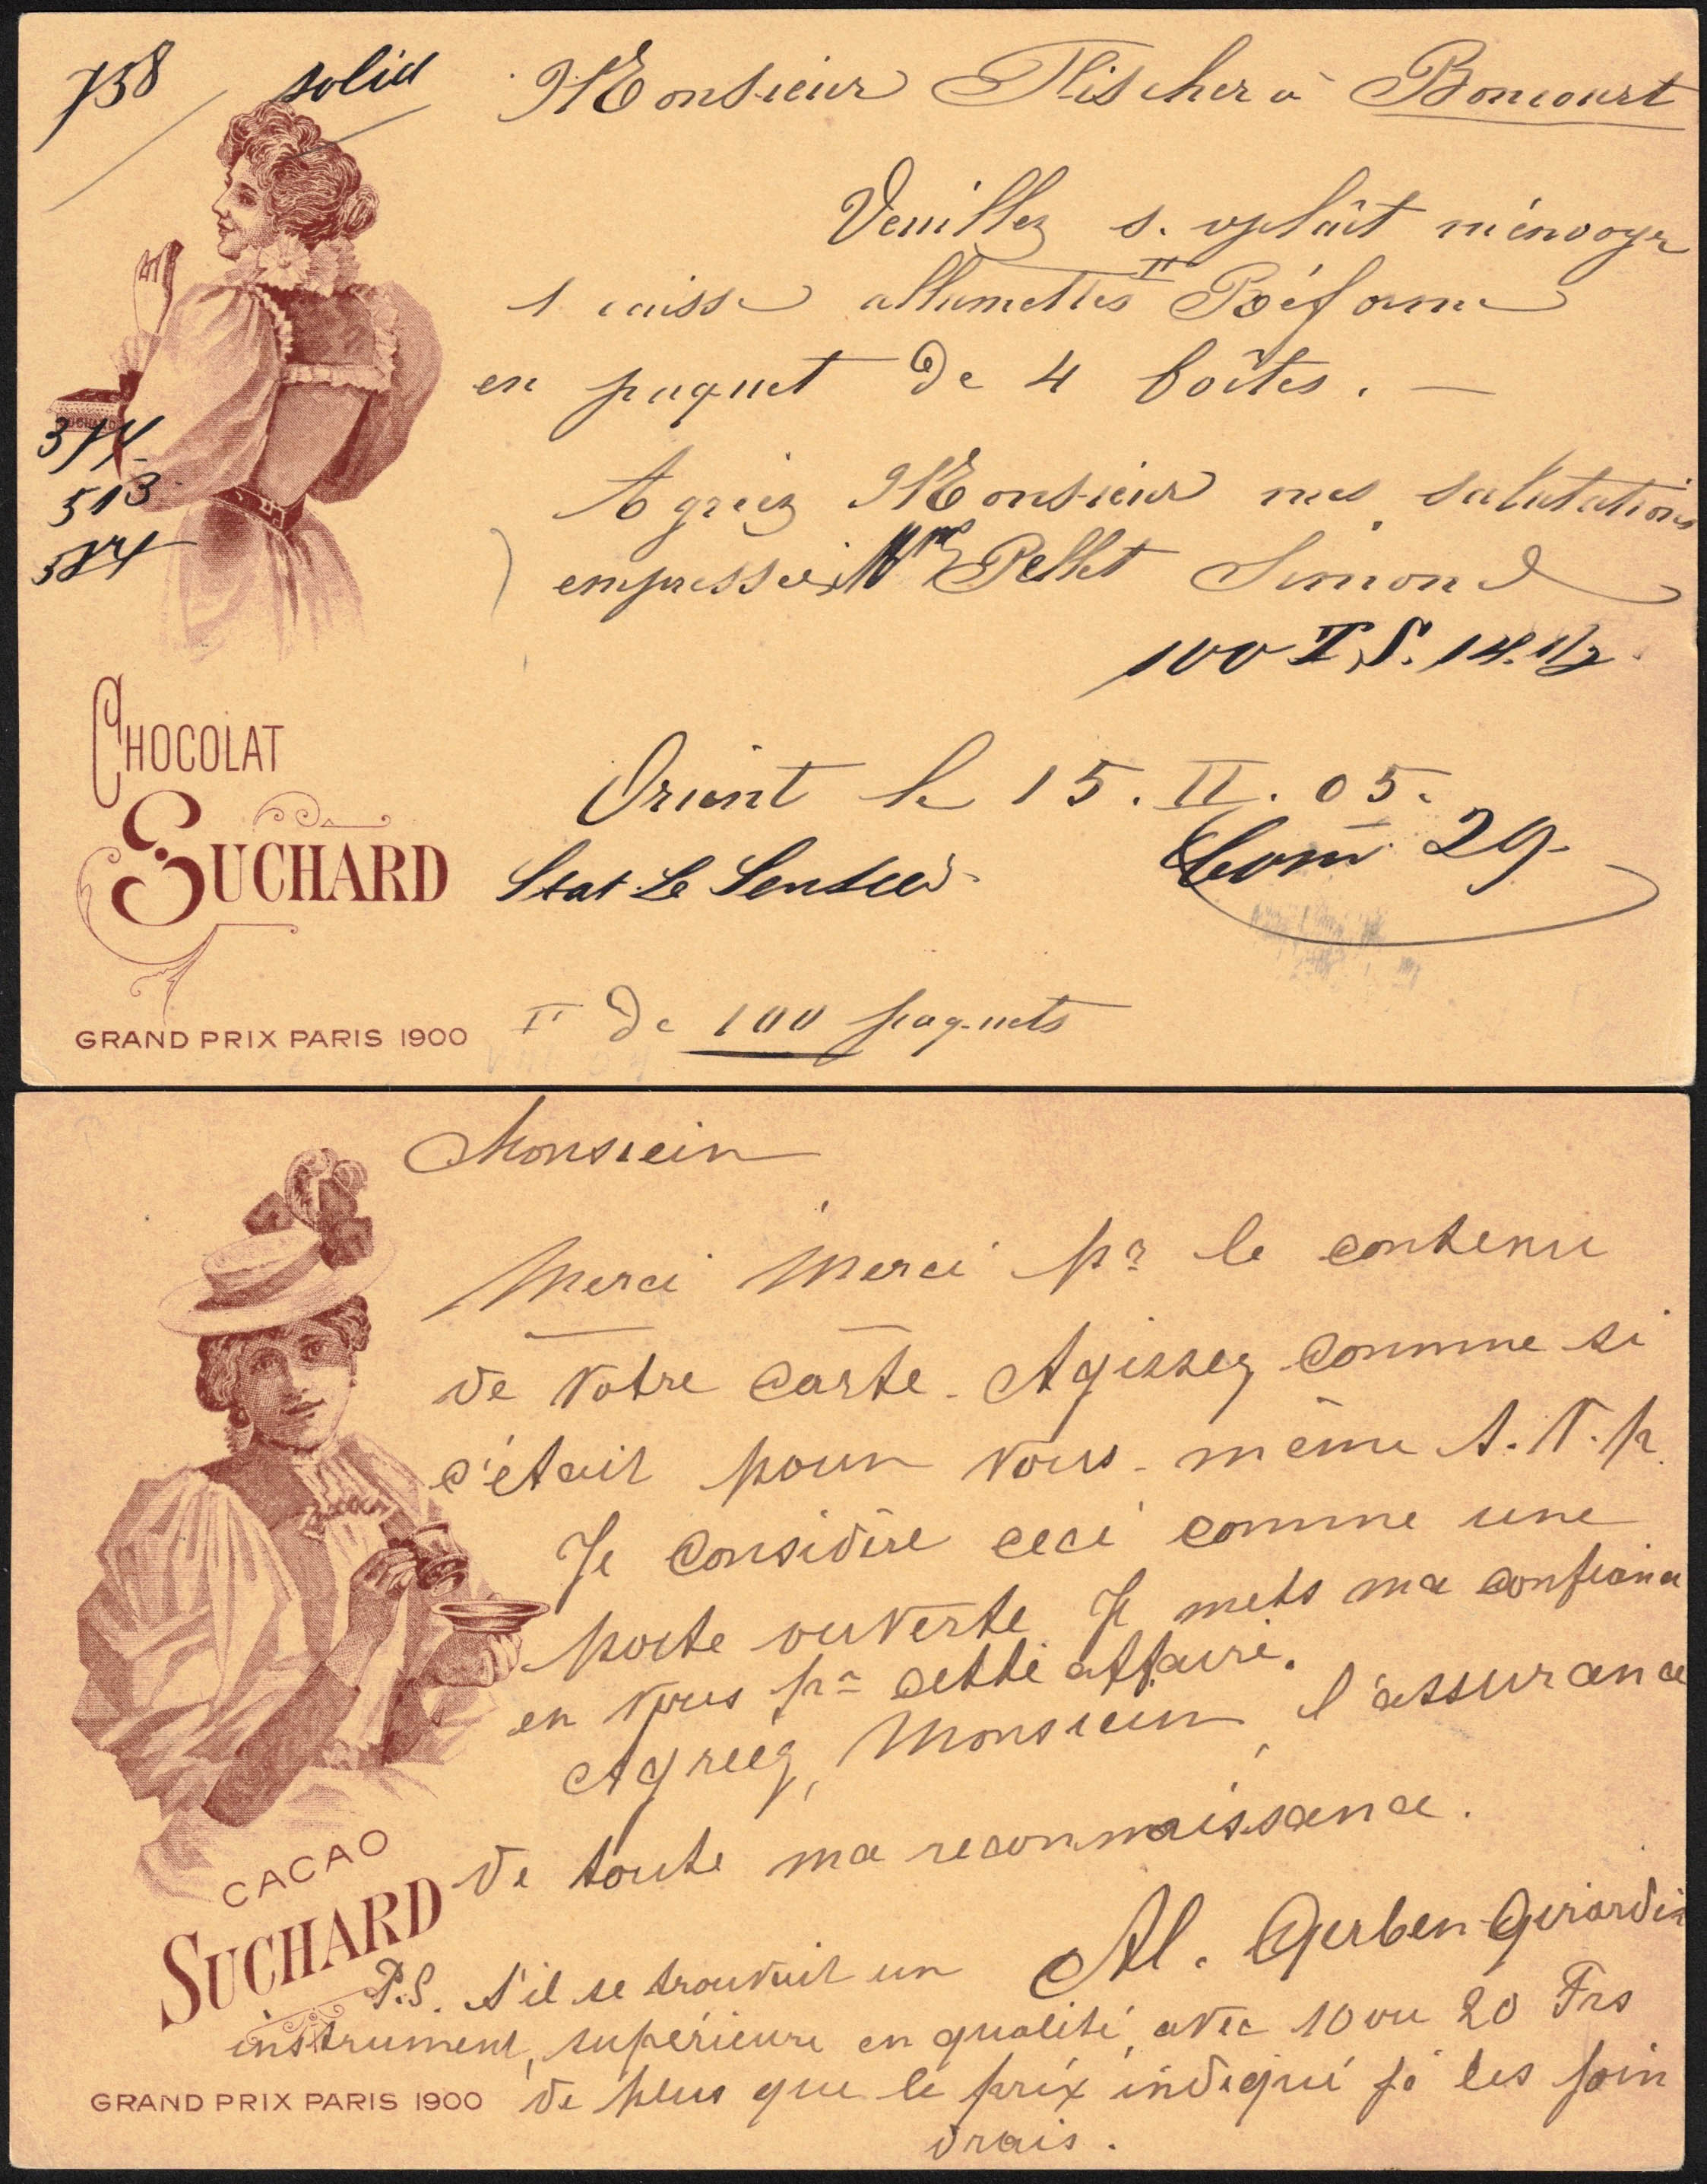 738 solid
Monsieur Flischer à Boncourt
Veuillez s. vplait m'envoyer
1 caisse allumettes II Réforme
en paquet de 4 boîtes. —
Agréez Monsieur mes salutations
empressées Mme Pellet Simond
100 I, S. 14. 1/2
Orient le 15. II. 05.
Stat. Le Sentier.
Com 29.
II de 100 paquets
514
513
584
CHOCOLAT
SUCHARD
GRAND PRIX PARIS 1900
Monsieur
Merci Merci pr le contenu
de votre carte. Agissez comme si
c'était pour vous-même S.V.p.
Je considère ceci comme une
porte ouverte Je mets ma confiance
en vous pr cette affaire.
Agréez, Monsieur, l'assurance
de toute ma reconnaissance.
Al. Gerben-Girardin
P.S. S'il se trouvait un
instrument, supérieure en qualité, avec 10 ou 20 Frs
de plus que le prix indiqué je les join
drais.
CACAO
SUCHARD
GRAND PRIX PARIS 1900